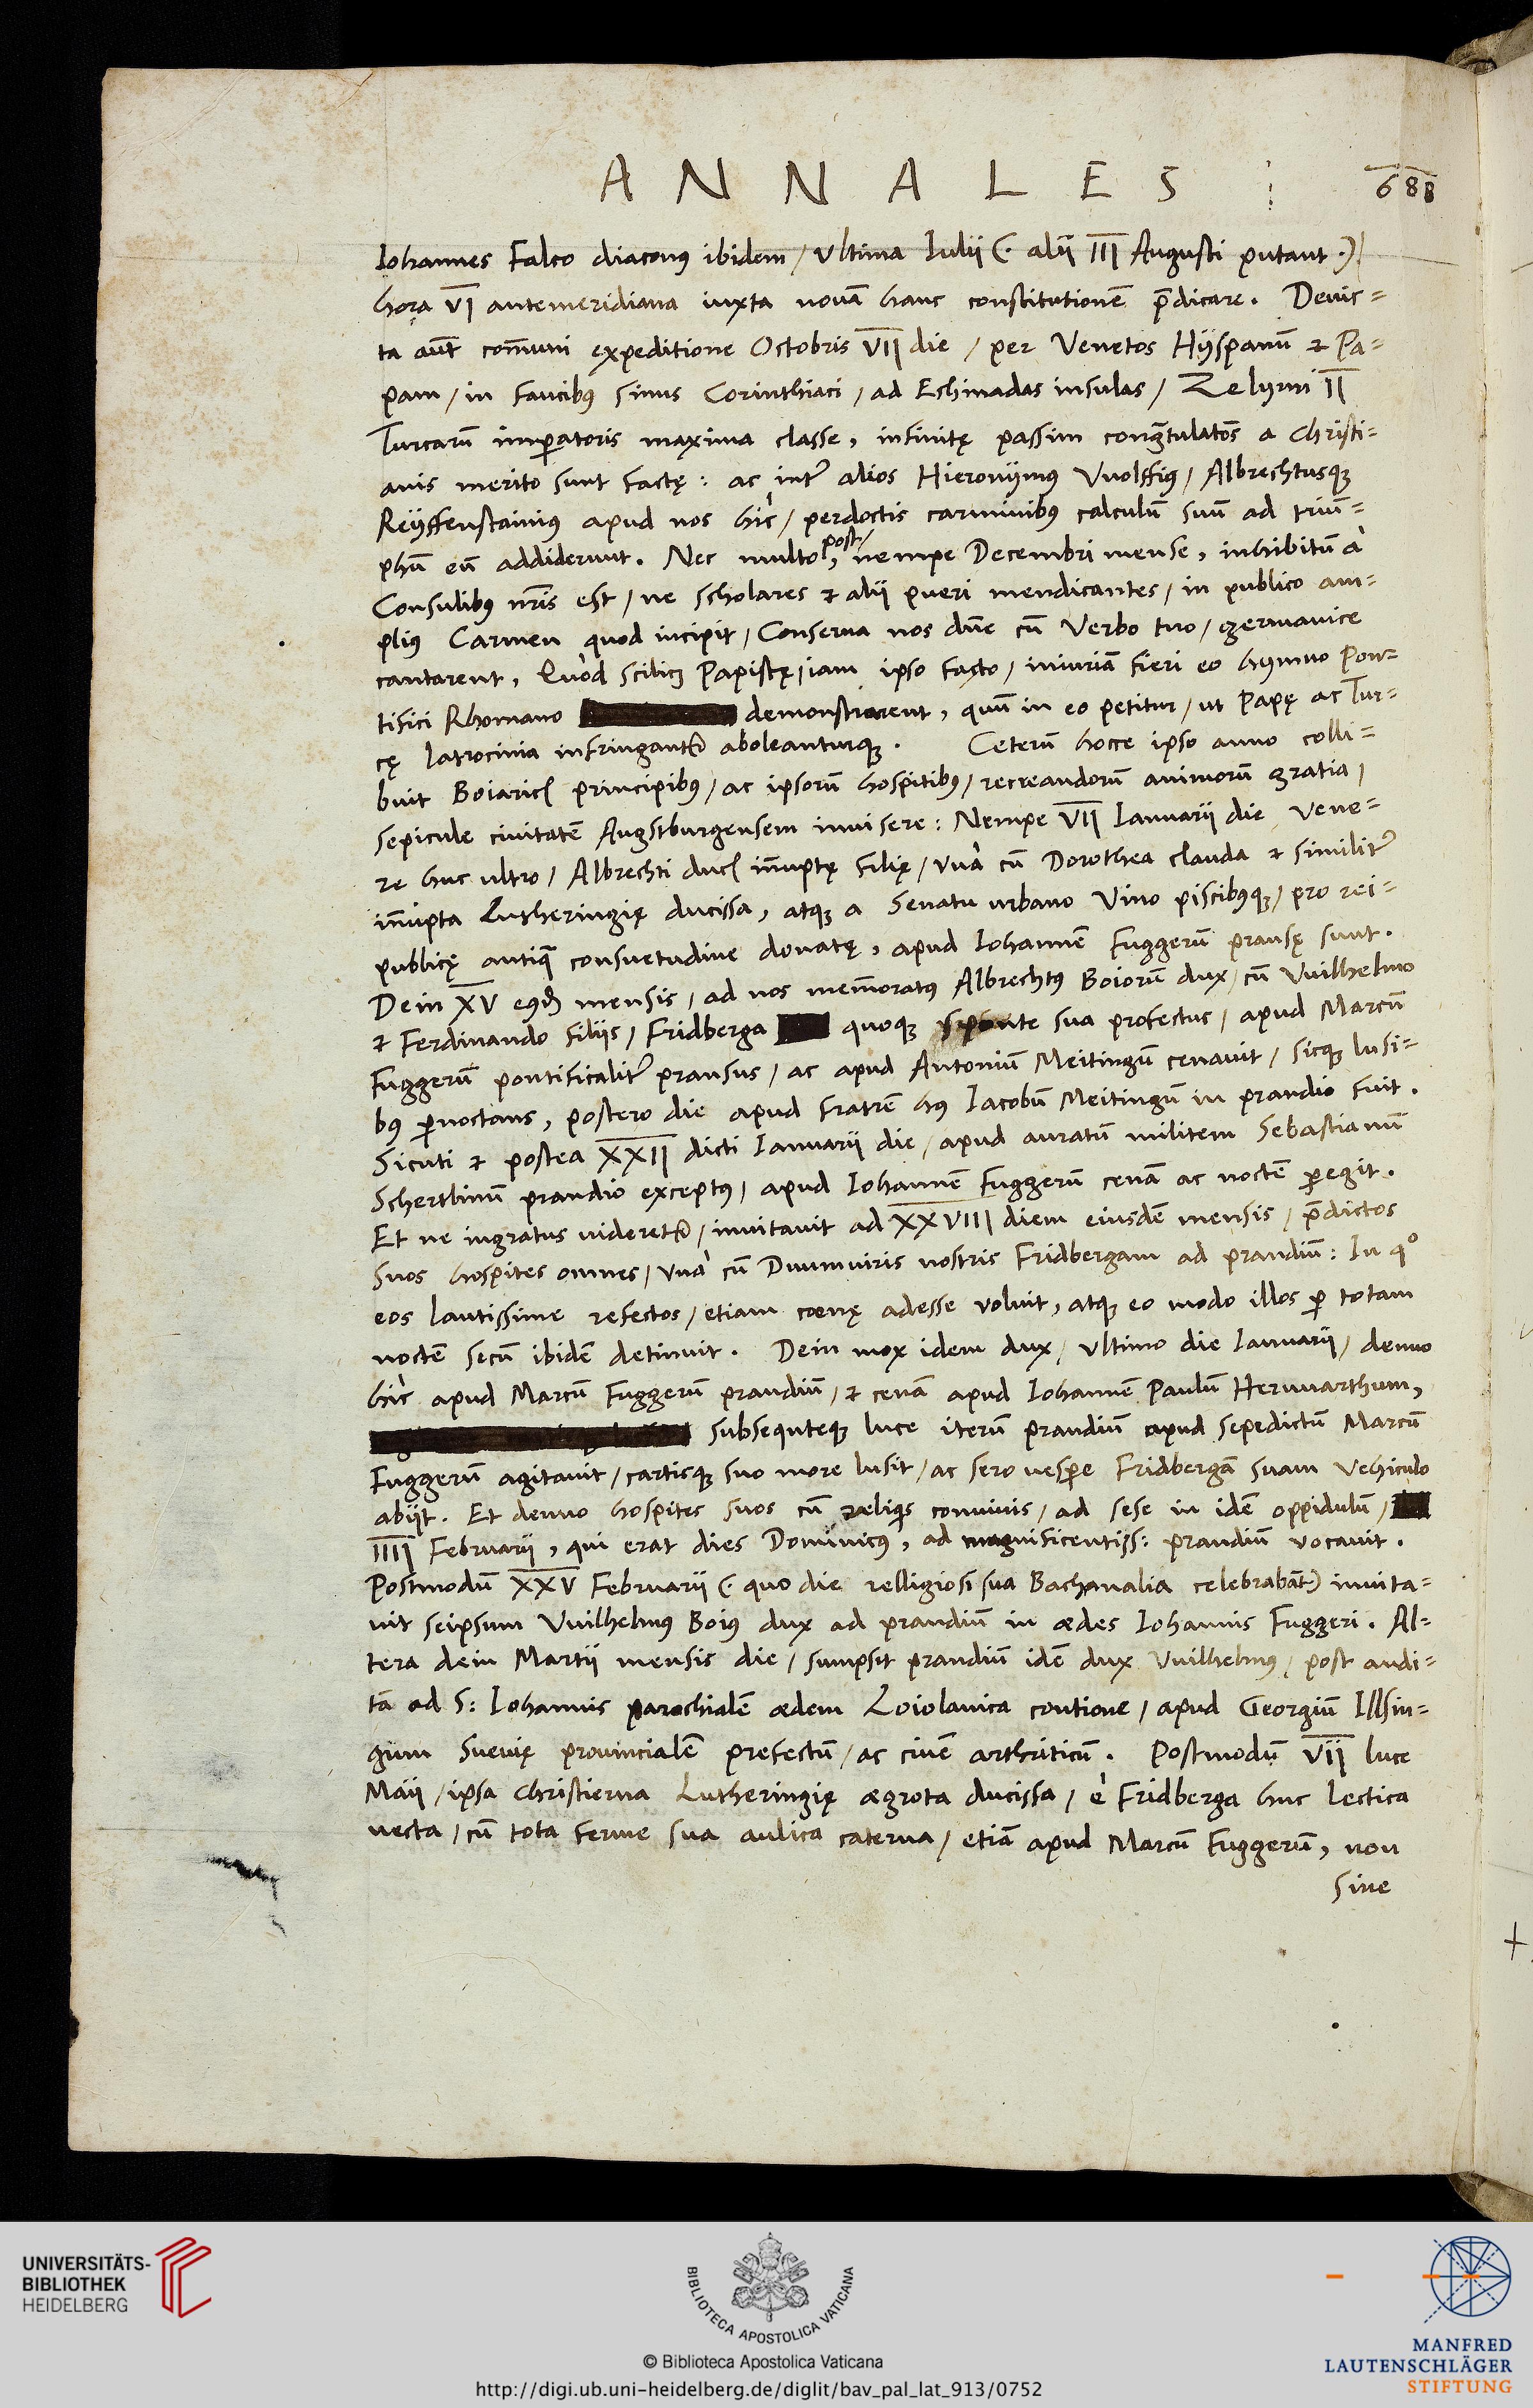 ANNALES 688
Iohannes Falco diaconꝰ ibidem / Vltima Iulii (. alii III Augusti putant .)
hora VI antemeridiana iuxta novā hanc constitutionē p̄dicare . Deuic=
ta aūt cōmuni expeditione Octobris VII die / per Venetos Hÿspanū & Pa=
pam / in faucibꝰ sinus Corinthiaci / ad Echinadas insulas / Zelymi II
Turcarū imp̄atoris maxima classe , infinitę passim congr̄tulatōs a Christi=
anis merito sunt factę : ac inter̄ alios Hieronÿmꝰ Vuolffiꝰ / Albrechtusqꝫ
Reÿffenstainius apud nos hîc / perdoctis carminibꝰ calculū suū ad triū=
phū eū addiderunt . Nec multo post/ , nempe Decembri mense , inhibitū à
Consulibꝰ nr̄is est / ne scholares & alii pueri mendicantes / in publico am=
pliꝰ Carmen quod incipit / Conserua nos dn̄e cū Verbo tuo / germanice
cantarent , Quòd scilicꝫ Papistę / iam ipso facto / iniuriā fieri eo hymno Pon=
tifici Rhomano demonstrarent , quū in eo petitur / ut Papę ac Tur=
cę latrocinia infringantur̄ aboleanturqꝫ . Ceterū hocce ipso anno colli=
buit Boiaricꝭ principibꝰ / ac ipsorū hospitibꝰ / recreandorū animorū gratia /
sepicule ciuitatē Augstburgensem inuisere : Nempe VII Ianuarii die Vene=
re huc ultro / Albrechti ducꝭ īnuptę filię / vnà cū Dorothea clauda & similiter̄
īnupta Lutheringię ducissa , atqꝫ a Senatu urbano Vino piscibꝰqꝫ / pro rei=
publicę antiqā consuetudine donatę , apud Iohannē Fuggerū pransę sunt .
Dein XV eꝰdē mensis / ad nos memōratꝰ Albrechtꝰ Boiorū dux / cū Vuilhelmo
& Ferdinando filiis / Fridberga quoqꝫ sponte sua profectus / apud Marcū
Fuggerū pontificaliter̄ pransus / ac apud Antoniū Meitingū cenauit / sicqꝫ lusi=
bꝰ p̄noctans , postero die apud fratrē hꝰ Iacobū Meitingū in prandio fuit .
Sicuti & postea XXII dicti Ianuarii die / apud auratū militem Sebastianū
Schertlinū prandio exceptꝰ / apud Iohannē Fuggerū cenā ac noctē p̄egit .
Et ne ingratus uideretur̄ / inuitauit ad XXVIII diem eiusdē mensis / p̄dictos
suos hospites omnes / vnà cū Duumuiris nostris Fridbergam ad prandiū : In qº
eos lautissime refectos / etiam cœnę adesse voluit , atqꝫ eo modo illos p̄ totam
noctē secū ibidē detinuit . Dein mox idem dux / ultimo die Ianuarii / denuo
hîc apud Marcū Fuggerū prandiū / & cenā apud Iohannē Paulū Heruuarthum ,
subsequteqꝫ luce iterū prandiū apud sepedictū Marcū
Fuggerū agitauit / cartisqꝫ suo more lusit / ac sero uesp̄e Fridbergā suam Vehiculo
abiit . Et denuo hospites suos cū reliqis conuiuis / ad sese in idē oppidulū /
IIII Februarii , qui erat dies Dominicꝰ , ad magnificentiss : prandiū vocauit .
Postmodū XXV Februarii (. quo die relligiosi sua Bachanalia celebrabāt .) inuita=
uit seipsum Vuilhelmꝰ Boiꝰ dux ad prandiū in ædes Iohannis Fuggeri . Al=
tera dein Martii mensis die / sumpsit prandiū idē dux Vuilhelmꝰ / post audi=
tā ad S : Iohannis parochialē ædem Loiolanica contione / apud Georgiū Illsin=
gum Sueuię prouincialē prefectū / ac ciuē arthriticū . Postmodū VII luce
Maii / ipsa Christierna Lutheringię ægrota ducissa / è Fridberga huc lectica
uecta / cū tota ferme sua aulica caterua / etiā apud Marcū Fuggerū , non
sine
UNIVERSITÄTS-
BIBLIOTHEK
HEIDELBERG
BIBLIOTECA APOSTOLICA VATICANA
© Biblioteca Apostolica Vaticana
http://digi.ub.uni-heidelberg.de/diglit/bav_pal_lat_913/0752
MANFRED
LAUTENSCHLÄGER
STIFTUNG